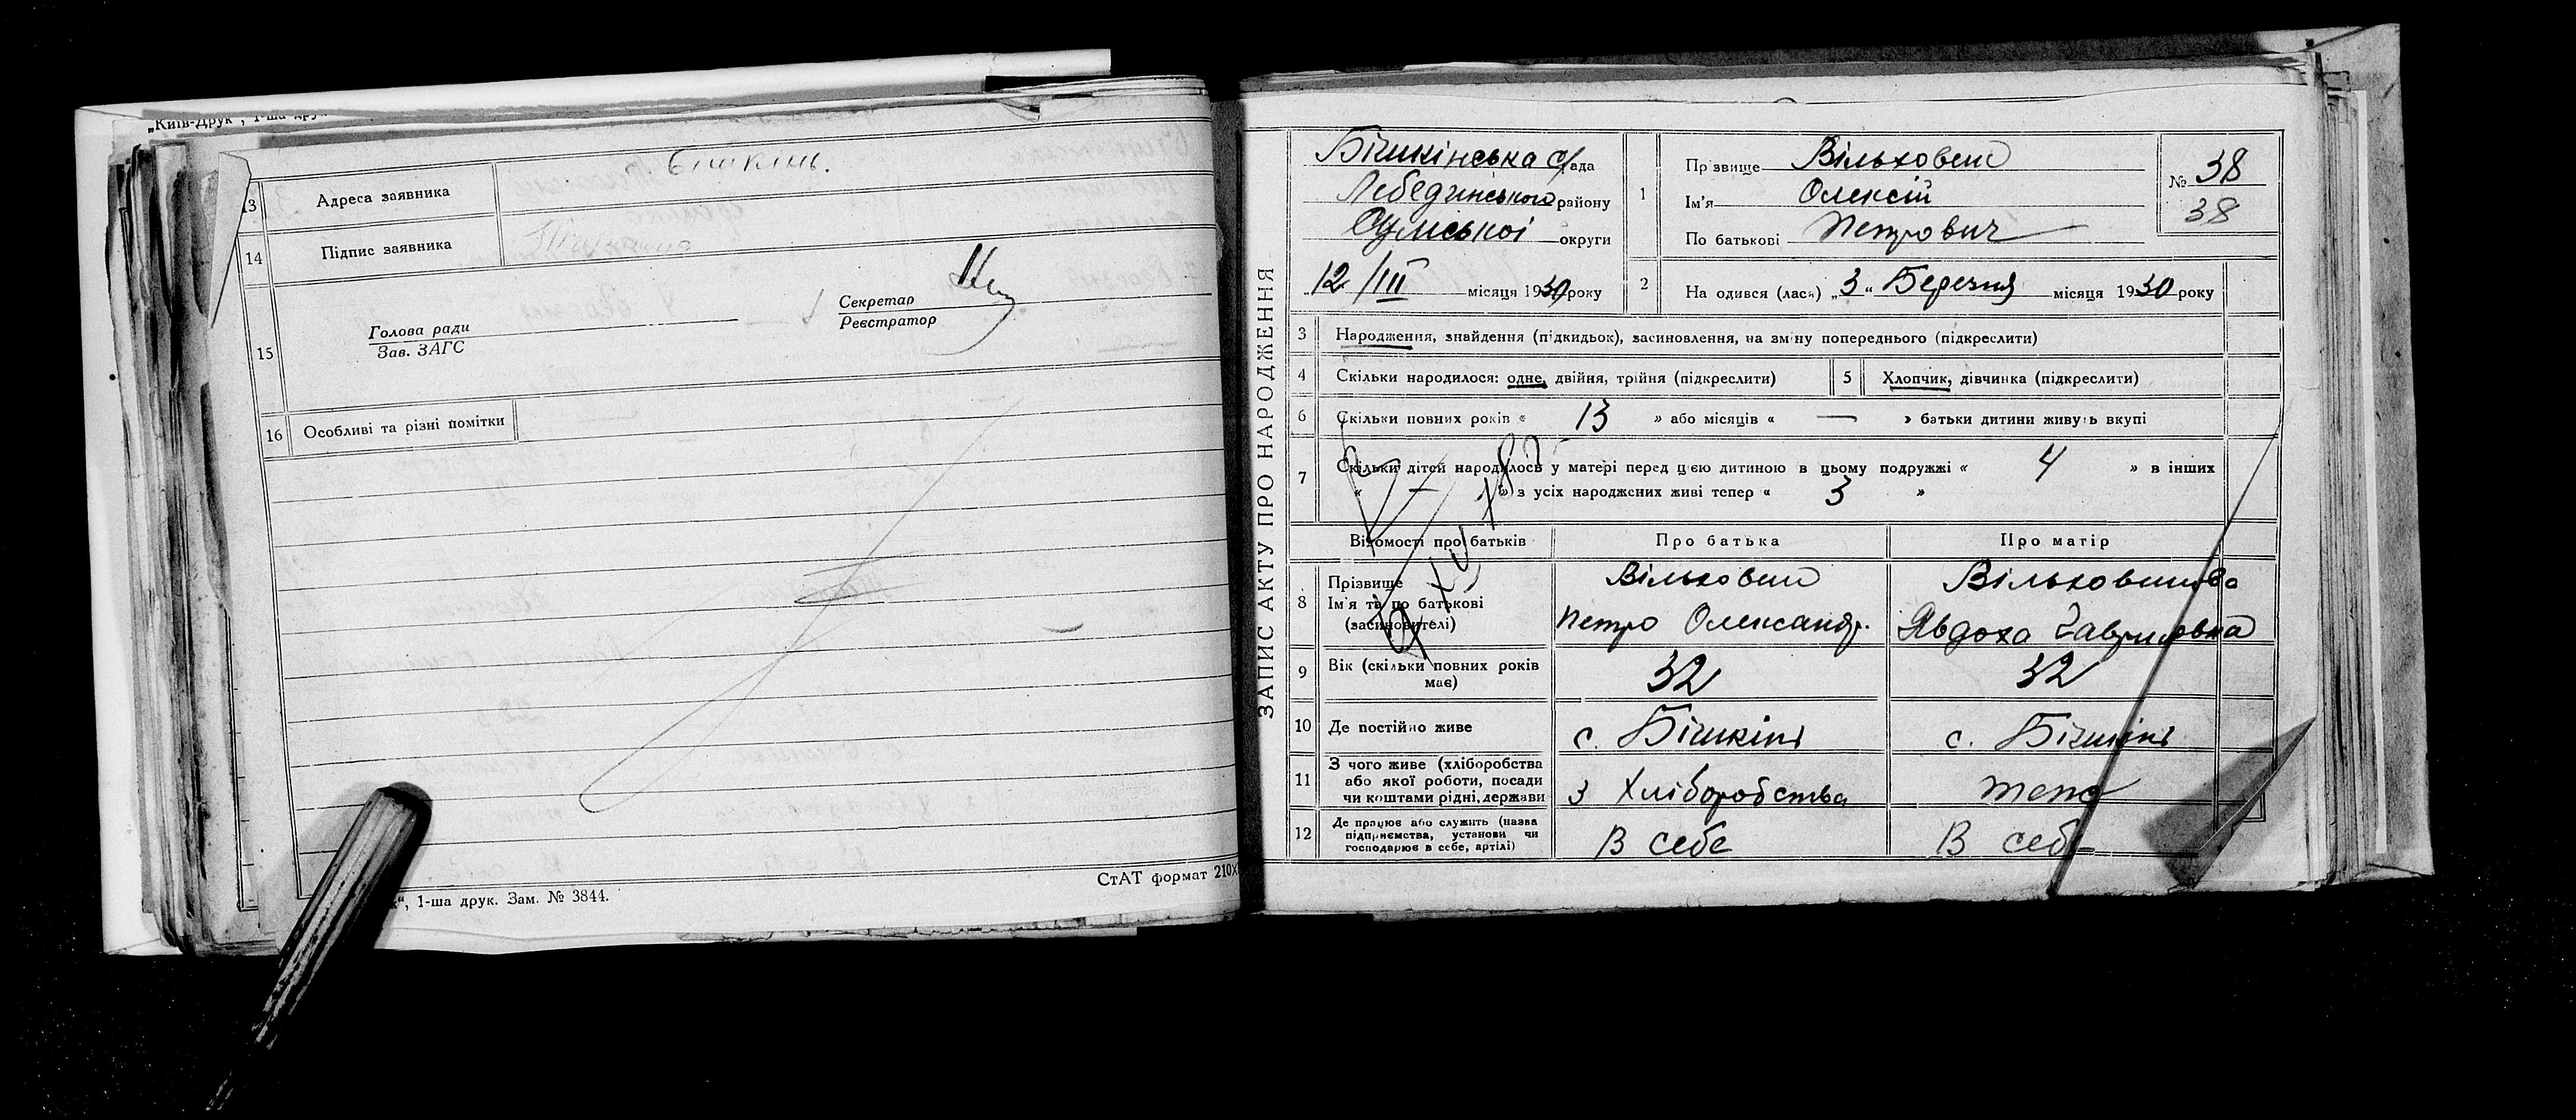 „Київ-Друк", 1-ша
Бишкінь.
13 Адреса заявника
14 Підпис заявника
15 Голова ради
Зав. ЗАГС
Секретар
Реєстратор
16 Особливі та різні помітки
1-ша друк. Зам. № 3844.
СтАТ формат 210X
ЗАПИС АКТУ ПРО НАРОДЖЕННЯ
Бішкінська с/рада
Лебединського району
Сумської округи
12/III місяця 1930 року
1 Прізвище Вільховик
Ім'я Олексій
По батькові Петрович
№ 38
38
2 Народився (лася) „3" Березня місяця 1930 року
3 Народження, знайдення (підкидьок), засиновлення, на зміну попереднього (підкреслити)
4 Скільки народилося: одне, двійня, трійня (підкреслити) 5 Хлопчик, дівчинка (підкреслити)
6 Скільки повних років « 13 » або місяців « — » батьки дитини живуть вкупі
7 Скільки дітей народилось у матері перед цією дитиною в цьому подружжі « 4 » в інших
« — » з усіх народжених живі тепер « 3 »
Відомості про батьків Про батька Про матір
8 Прізвище
Ім'я та по батькові
(засиновителі)
Вільховик
Петро Олександр.
Явдоха Гавриловна
9 Вік (скільки повних років
має) 32 32
10 Де постійно живе с. Бішкінь с. Бішкінь
11 З чого живе (хліборобства
або якої роботи, посади
чи коштами рідні, держави
З Хліборобства теж
12 Де працює або служить (назва
підприємства, установи чи
господарює в себе, артілі)
В себе В себе